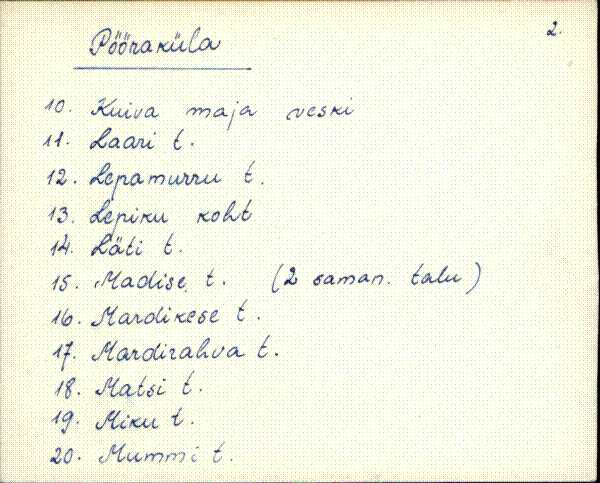 2.
Pööraküla
10. Kuiva maja veski
11. Laari t.
12. Lepamurru t.
13. Lepiku koht
14. Läti t.
15. Madise t. (2 saman. talu)
16. Mardikese t.
17. Mardirahva t.
18. Matsi t.
19. Miku t.
20. Mummi t.